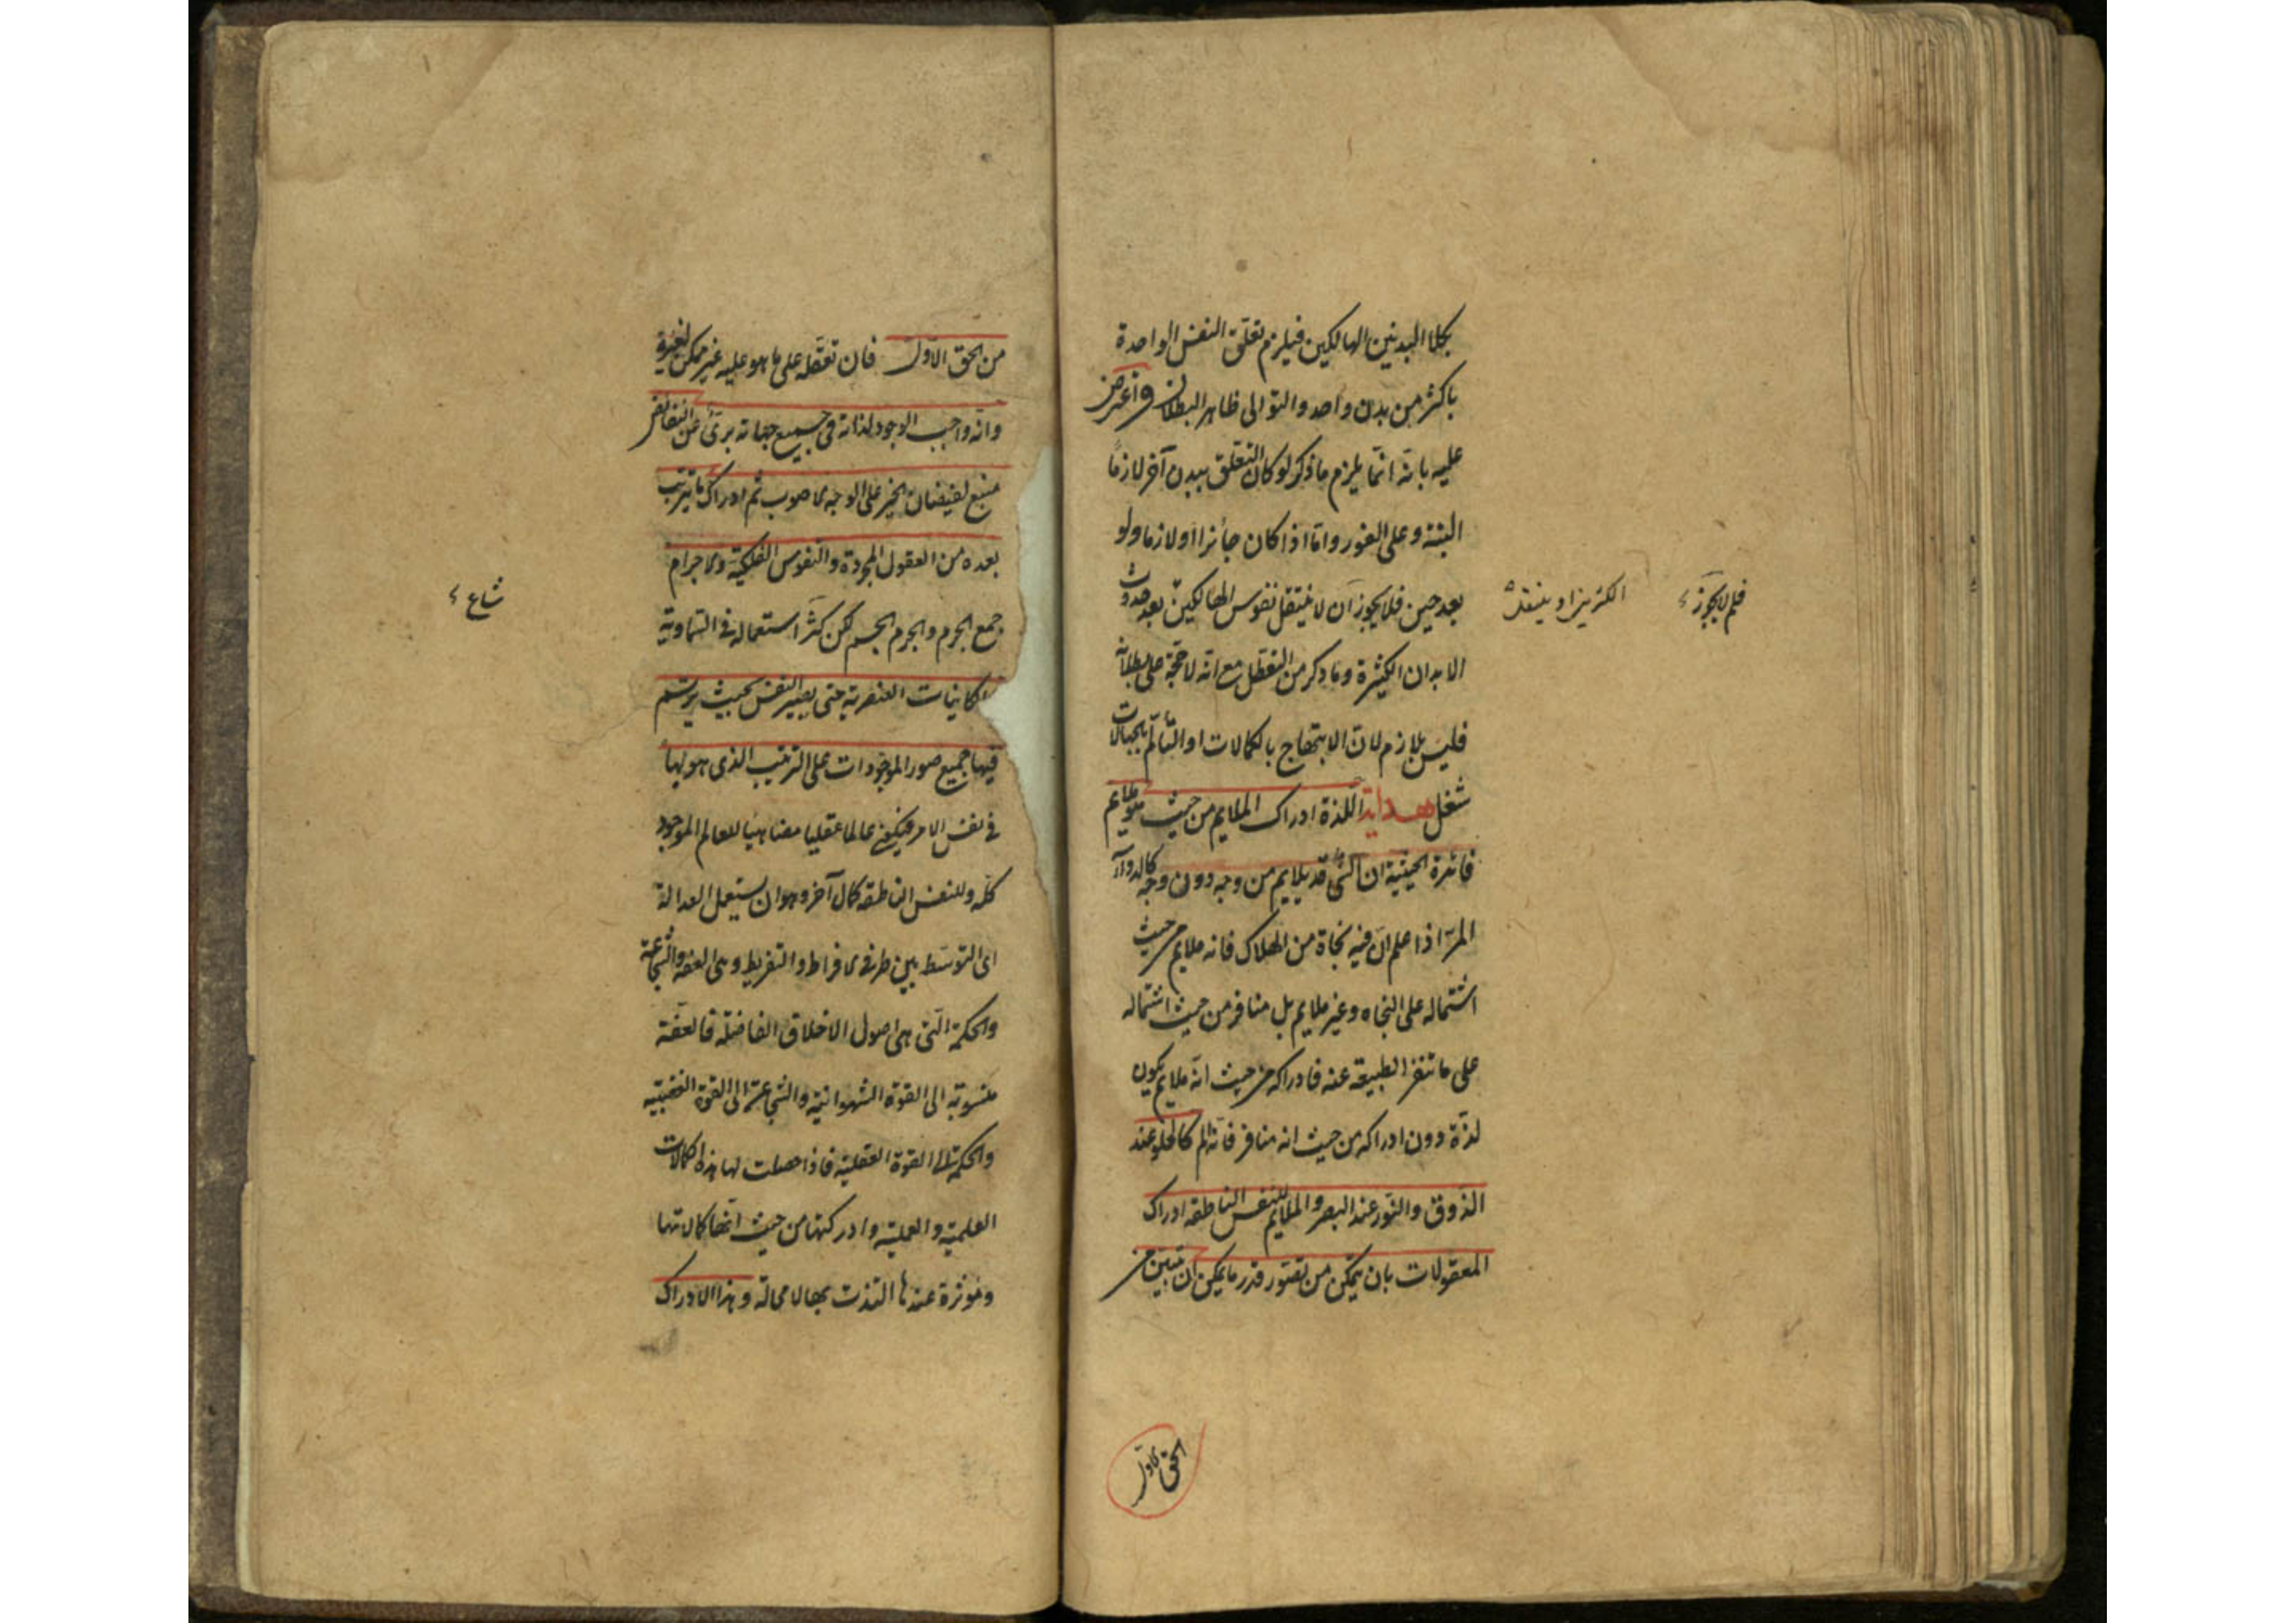 بكلا البدنين الهالكين فيلزم تعلق النفس الواحدة
باكثر من بدن واحد والتوالى ظاهر البطلان واعترض
عليه بانه انما يلزم ما ذكر لو كان التعلق ببدن آخر لازما
البتة وعلى الفور واما اذا كان جائزا او لازما ولو
بعد حين فلا يجوز ان لا ينتقل نفوس الهالكين بعد حدوث
الابدان الكثيرة وما ذكر من التعطل مع انه لا حجة على بطلانه
فليس بلازم لان الابتهاج بالكمالات او التألم بالجهالات
شغل هداية اللذة ادراك الملايم من حيث هو ملايم
فائدة الحيثية ان الشئ قد يلايم من وجه دون وجه كالدواء
المر اذا علم ان فيه نجاة من الهلاك فانه ملايم من حيث
اشتماله على النجاه وغير ملايم بل منافر من حيث اشتماله
على ما تنفر الطبيعة عنه فادراكه من حيث انه ملايم يكون
لذة دون ادراكه من حيث انه منافر فانه الم كالحلو عند
الذوق والنور عند البصر والملايم للنفس الناطقه ادراك
المعقولات بان يتمكن من تصور قدر ما يمكن ان يتبين من
الحق الاول
فلم لا يجوز
من الحق الاول فان تعقله على ما هو عليه غير ممكن لغيره
وانه واجب الوجود لذاته فى جميع جهاته برئ عن النقائص
منبع لفيضان الخير على الوجه الاصوب ثم ادراك ما يترتب
بعده من العقول المجردة والنفوس الفلكية والاجرام
جمع الجرم والجرم الجسم لكن كثر استعماله فى السماوية
والكاينات العنصرية حتى يصير النفس بحيث يرتسم
فيها جميع صور الموجودات على الترتيب الذى هو لها
فى نفس الامر فيكون عالما عقليا مضاهيا للعالم الموجود
كله وللنفس الناطقه كمال آخر وهو ان يستعمل العدالة
اى التوسط بين طرفى الافراط والتفريط وهى العفه والشجاعة
والحكمة التى هى اصول الاخلاق الفاضلة فالعفة
منسوبة الى القوة الشهوانية والشجاعة الى القوة الغضبيه
والحكمة الى القوة العقلية فاذا حصلت لها هذه الكمالات
العلمية والعملية وادركتها من حيث انها كمالاتها
ومؤثرة عندها التذت بها لا محالة وهذا الادراك
شاع